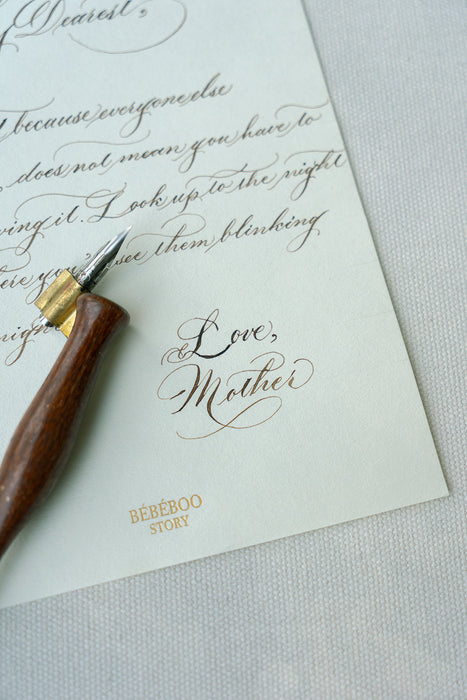 Dearest,
because everyone else
does not mean you have to
it. Look up to the night
see them blinking
Love,
Mother
BÉBÉBOO
STORY